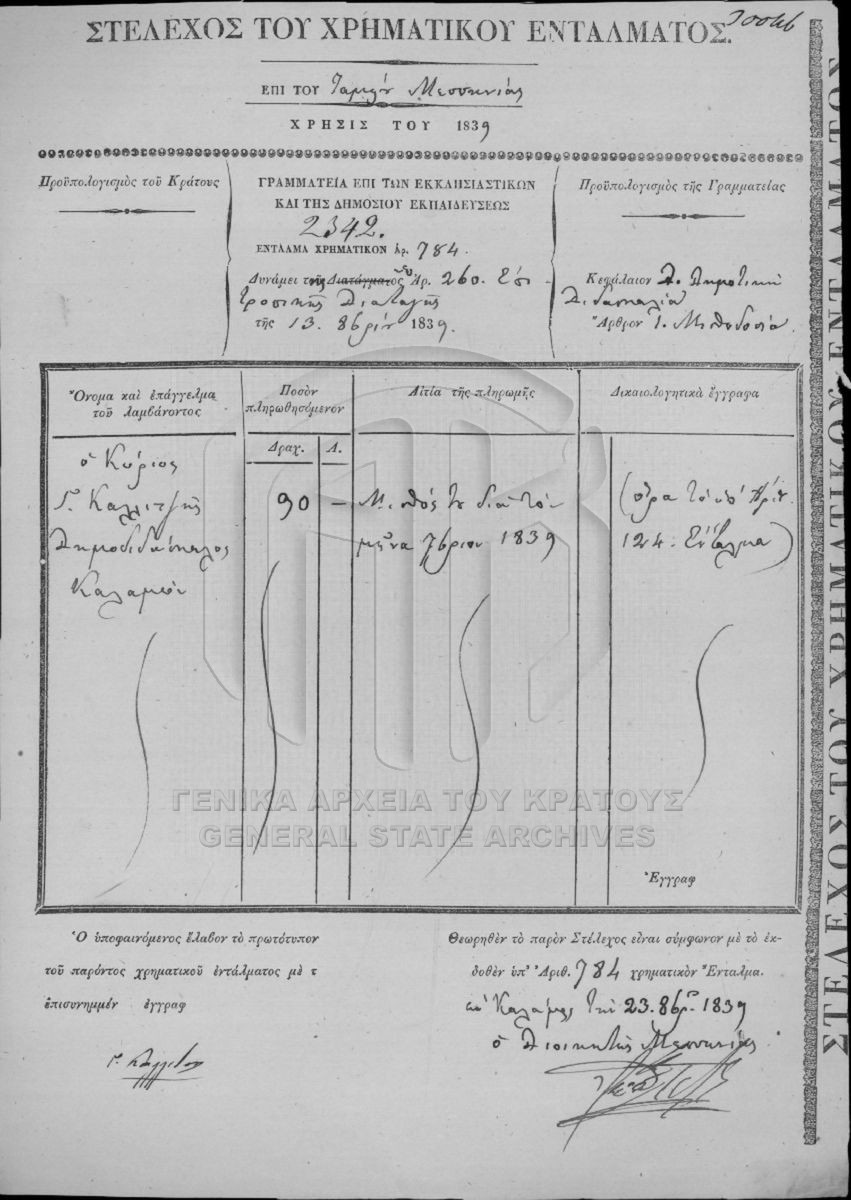 ΣΤΕΛΕΧΟΣ ΤΟΥ ΧΡΗΜΑΤΙΚΟΥ ΕΝΤΑΛΜΑΤΟΣ.
ΕΠΙ ΤΟΥ Ταμείου Μεσσηνίας
ΧΡΗΣΙΣ ΤΟΥ 1839
Προϋπολογισμὸς τοῦ Κράτους
ΓΡΑΜΜΑΤΕΙΑ ΕΠΙ ΤΩΝ ΕΚΚΛΗΣΙΑΣΤΙΚΩΝ
ΚΑΙ ΤΗΣ ΔΗΜΟΣΙΟΥ ΕΚΠΑΙΔΕΥΣΕΩΣ
2342.
ΕΝΤΑΛΜΑ ΧΡΗΜΑΤΙΚΟΝ Ἀρ. 784.
Δυνάμει τῆς Διατάγματος Ἀρ. 260. Ἐπι
τροπικῆς Διαταγῆς
τῆς 13. 8βρίου 1839.
Προϋπολογισμὸς τῆς Γραμματείας
Κεφάλαιον Δ. Δημοτικὴ
Διδασκαλία
Ἄρθρον 1. Μισθοδοσία.
Ὄνομα καὶ ἐπάγγελμα
τοῦ λαμβάνοντος
Ποσὸν
πληρωθησόμενον
Δραχ. Λ.
Αἰτία τῆς πληρωμῆς
Δικαιολογητικὰ ἔγγραφα
ὁ Κύριος
Γ. Καλλιτζῆς
Δημοδιδάσκαλος
Καλαμῶν
90 —
Μισθός του διὰ τὸν
μῆνα 7βριον 1839
(ὅρα τὸ ὑπ' Ἀριθ.
124. Ἔνταλμα)
Ἔγγραφ
ΓΕΝΙΚΑ ΑΡΧΕΙΑ ΤΟΥ ΚΡΑΤΟΥΣ
GENERAL STATE ARCHIVES
Ὁ ὑποφαινόμενος ἔλαβον τὸ πρωτότυπον
τοῦ παρόντος χρηματικοῦ ἐντάλματος μὲ τ
ἐπισυνημμέν ἐγγραφ
Θεωρηθὲν τὸ παρὸν Στέλεχος εἶναι σύμφωνον μὲ τὸ ἐκ-
δοθὲν ὑπ' Ἀριθ. 784 χρηματικὸν Ἔνταλμα.
ἐν Καλάμαις τὴν 23. 8βρ. 1839
ὁ Διοικητὴς Μεσσηνίας
ΣΤΕΛΕΧΟΣ ΤΟΥ ΧΡΗΜΑΤΙΚΟΥ ΕΝΤΑΛΜΑΤΟΣ